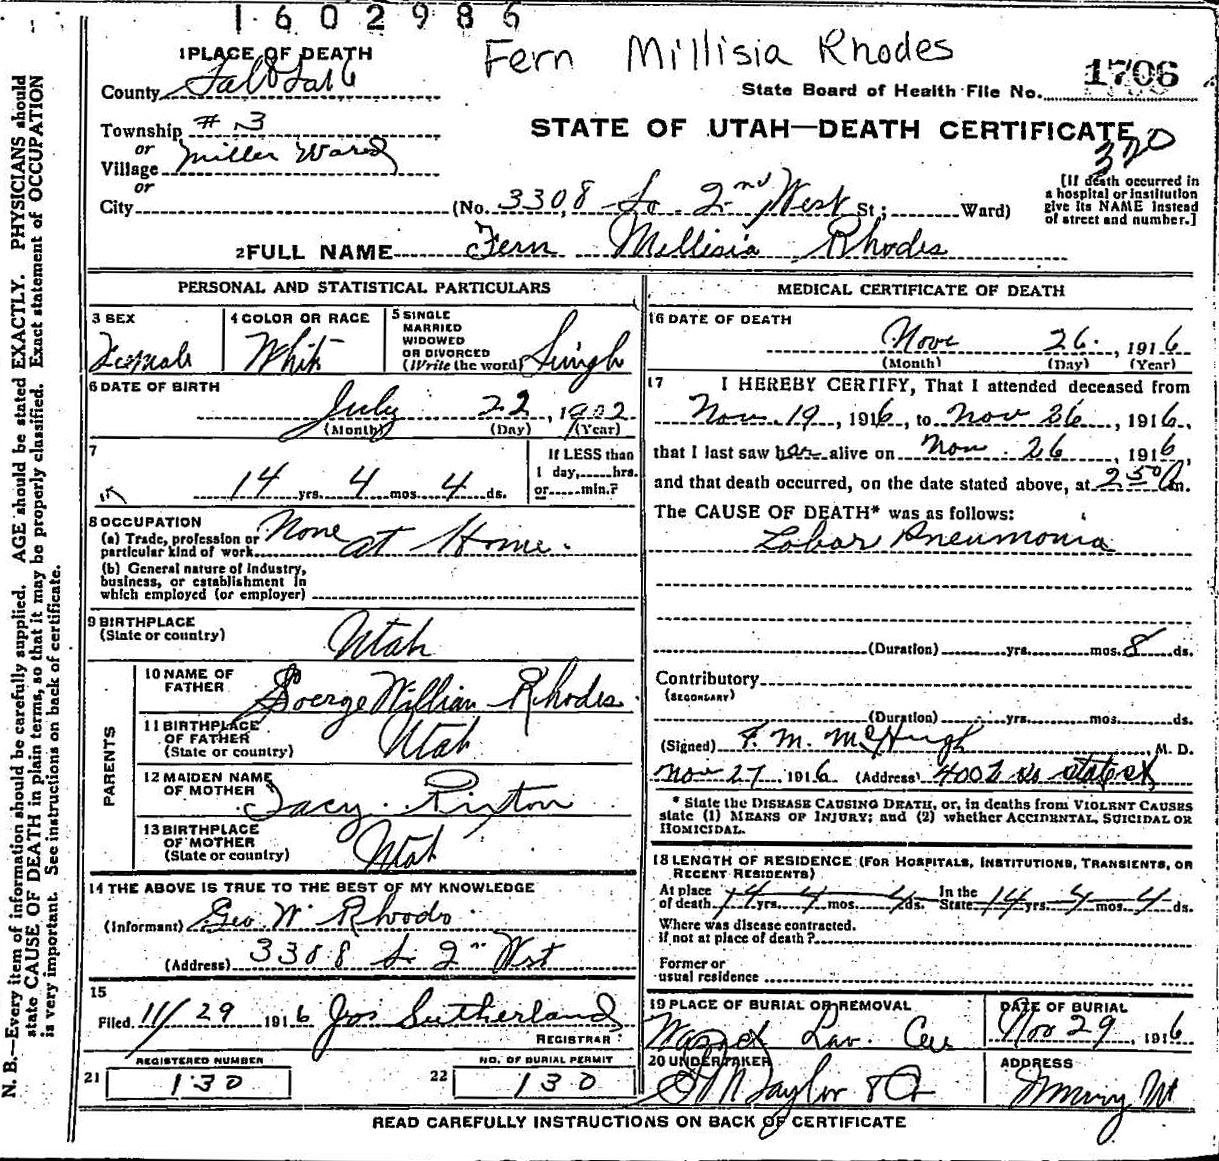 1602986
Fern Millisia Rhodes
1 PLACE OF DEATH
County Salt Lake
State Board of Health File No. 1706
Township # 3
STATE OF UTAH—DEATH CERTIFICATE
320
or
Village Miller Ward
or
City (No. 3308 So. 2nd West St; Ward)
[If death occurred in
a hospital or institution
give its NAME instead
of street and number.]
2 FULL NAME Fern Mellisia Rhodes
PERSONAL AND STATISTICAL PARTICULARS
3 SEX
Female
4 COLOR OR RACE
White
5 SINGLE
MARRIED
WIDOWED
OR DIVORCED
(Write the word) Single
6 DATE OF BIRTH
July 22, 1902
(Month) (Day) (Year)
7
14 yrs. 4 mos. 4 ds.
If LESS than
1 day, hrs.
or min.?
8 OCCUPATION
(a) Trade, profession or
particular kind of work None at Home.
(b) General nature of Industry,
business, or establishment in
which employed (or employer)
9 BIRTHPLACE
(State or country)
Utah
PARENTS
10 NAME OF
FATHER
Goerge William Rhodes.
11 BIRTHPLACE
OF FATHER
(State or country)
Utah
12 MAIDEN NAME
OF MOTHER
Tacy Rixton
13 BIRTHPLACE
OF MOTHER
(State or country)
Utah
14 THE ABOVE IS TRUE TO THE BEST OF MY KNOWLEDGE
(Informant) Geo W Rhodes
(Address) 3308 So 2nd West
15
Filed 11/29 1916 Jos Sutherland
REGISTRAR
REGISTERED NUMBER
21 130
NO. OF BURIAL PERMIT
22 130
MEDICAL CERTIFICATE OF DEATH
16 DATE OF DEATH
Nov 26, 1916
(Month) (Day) (Year)
17 I HEREBY CERTIFY, That I attended deceased from
Nov. 19, 1916, to Nov 26, 1916,
that I last saw her alive on Nov. 26, 1916,
and that death occurred, on the date stated above, at 2 50 A m.
The CAUSE OF DEATH* was as follows:
Lobar Pneumonia
(Duration) yrs. mos. 8 ds.
Contributory
(SECONDARY)
(Duration) yrs. mos. ds.
(Signed) F. M. McHugh, M. D.
Nov 27 1916 (Address) 4002 So State St
* State the DISEASE CAUSING DEATH, or, in deaths from VIOLENT CAUSES
state (1) MEANS OF INJURY; and (2) whether ACCIDENTAL, SUICIDAL OR
HOMICIDAL.
18 LENGTH OF RESIDENCE (FOR HOSPITALS, INSTITUTIONS, TRANSIENTS, OR
RECENT RESIDENTS)
At place
of death 14 yrs. 4 mos. 4 ds.
In the
State 14 yrs. 4 mos. 4 ds.
Where was disease contracted.
if not at place of death?
Former or
usual residence
19 PLACE OF BURIAL OR REMOVAL
Lawn
DATE OF BURIAL
Nov 29, 1916
20 UNDERTAKER
Taylor & Co
ADDRESS
Murray Ut
READ CAREFULLY INSTRUCTIONS ON BACK OF CERTIFICATE
N. B.—Every item of information should be carefully supplied. AGE should be stated EXACTLY. PHYSICIANS should
state CAUSE OF DEATH in plain terms, so that it may be properly classified. Exact statement of OCCUPATION
is very important. See instructions on back of certificate.